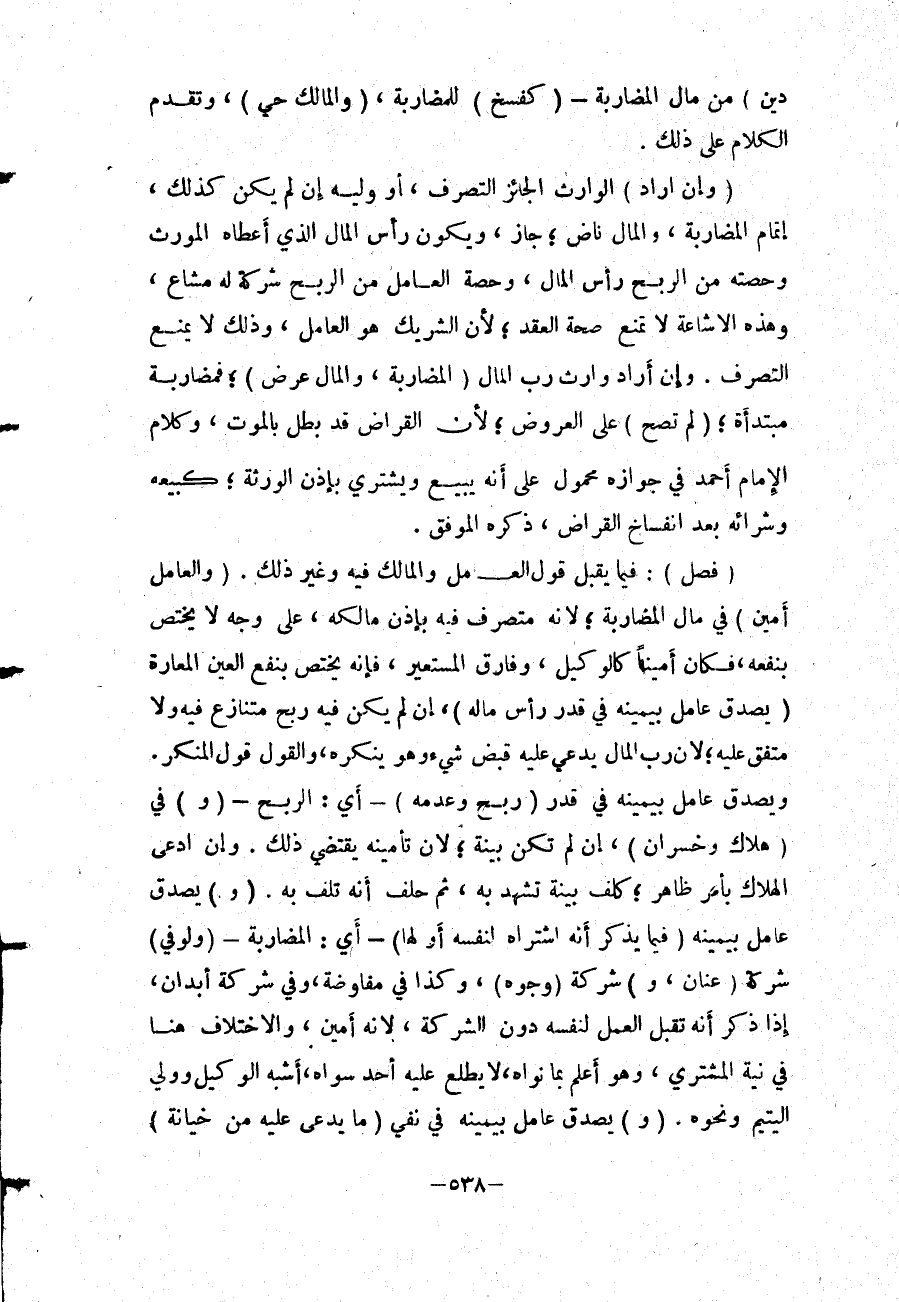 دين ) من مال المضاربة – ( كفسخ ) للمضاربة ، ( والمالك حي ) ، وتقدم
الكلام على ذلك .
( وإن اراد ) الوارث الجائز التصرف ، أو وليه إن لم يكن كذلك ،
إتمام المضاربة ، والمال ناض ؛ جاز ، ويكون رأس المال الذي أعطاه المورث
وحصته من الربح رأس المال ، وحصة العامل من الربح شركة له مشاع ،
وهذه الاشاعة لا تمنع صحة العقد ؛ لأن الشريك هو العامل ، وذلك لا يمنع
التصرف . وإن أراد وارث رب المال ( المضاربة ، والمال عرض ) ؛ فمضاربة
مبتدأة ؛ ( لم تصح ) على العروض ؛ لأن القراض قد بطل بالموت ، وكلام
الإمام أحمد في جوازه محمول على أنه يبيع ويشتري بإذن الورثة ؛ كبيعه
وشرائه بعد انفساخ القراض ، ذكره الموفق .
( فصل ) : فيما يقبل قول العـــمل والمالك فيه وغير ذلك . ( والعامل
أمين ) في مال المضاربة ؛ لانه متصرف فيه بإذن مالكه ، على وجه لا يختص
بنفعه ، فكان أميناً كالوكيل ، وفارق المستعير ، فإنه يختص بنفع العين المعارة
( يصدق عامل بيمينه في قدر رأس ماله ) ، إن لم يكن فيه ربح متنازع فيه ولا
متفق عليه ؛ لان رب المال يدعي عليه قبض شيء وهو ينكره ، والقول قول المنكر .
ويصدق عامل بيمينه في قدر ( ربح وعدمه ) – أي : الربح – ( و ) في
( هلاك وخسران ) ، إن لم تكن بينة ؛ لان تأمينه يقتضي ذلك . وإن ادعى
الهلاك بأمر ظاهر ؛ كلف بينة تشهد به ، ثم حلف أنه تلف به . ( و ) يصدق
عامل بيمينه ( فيما يذكر أنه اشتراه لنفسه أو لها ) – أي : المضاربة – ( ولو في )
شركة ( عنان ، و ) شركة ( وجوه ) ، وكذا في مفاوضة ، وفي شركة أبدان ،
إذا ذكر أنه تقبل العمل لنفسه دون الشركة ، لانه أمين ، والاختلاف هنا
في نية المشتري ، وهو أعلم بما نواه ، لا يطلع عليه أحد سواه ، أشبه الوكيل وولي
اليتيم ونحوه . ( و ) يصدق عامل بيمينه في نفي ( ما يدعى عليه من خيانة )
–٥٣٨–